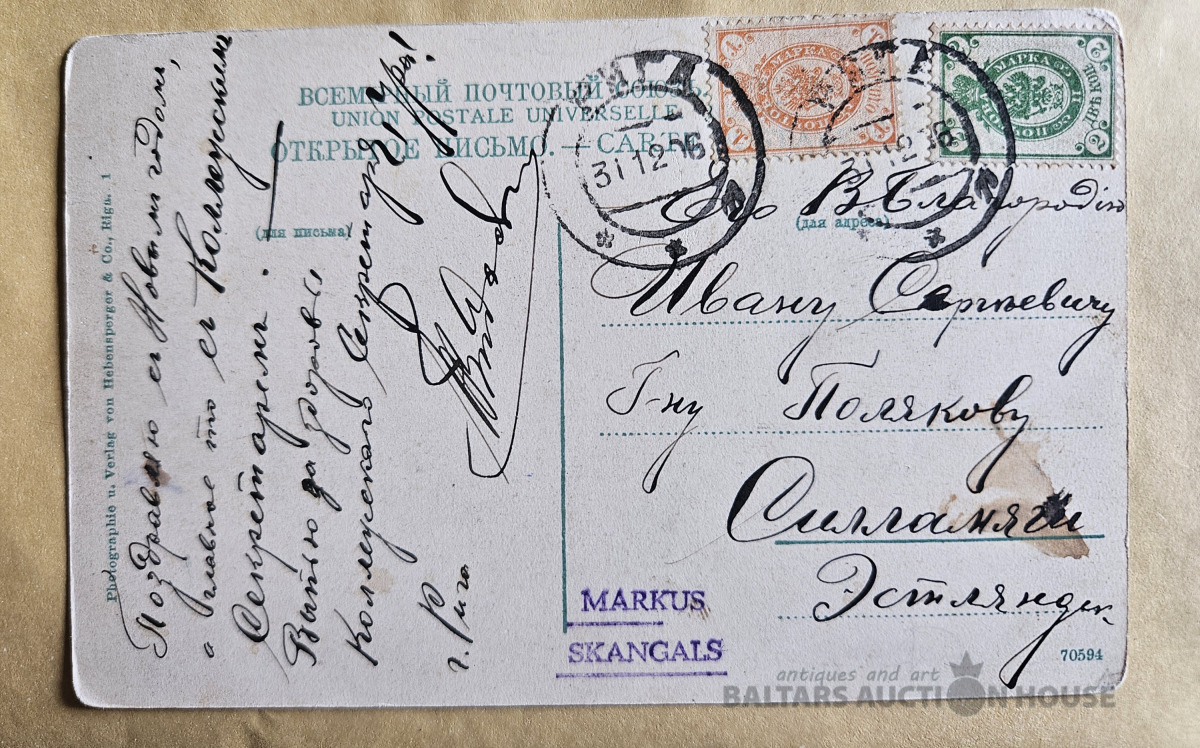 ВСЕМІРНЫЙ ПОЧТОВЫЙ СОЮЗЪ.
UNION POSTALE UNIVERSELLE
ОТКРЫТОЕ ПИСЬМО. — CARTE
(для письма)
(для адреса)
Поздравляю съ Новымъ годом,
а главное то съ Коллежским
Секретаремъ.
Выпью за здоровье
Коллежскаго Секретаря
Ура!
г. Рига
Photographie u. Verlag von Hebensperger & Co., Riga. 1
РИГА
31 12 06
МАРКА
МАРКА
Его ВБлагородію
Ивану Сергѣевичу
Г-ну Полякову
Силламяги
Эстляндск.
MARKUS
SKANGALS
70594
antiques and art
BALTARS AUCTION HOUSE